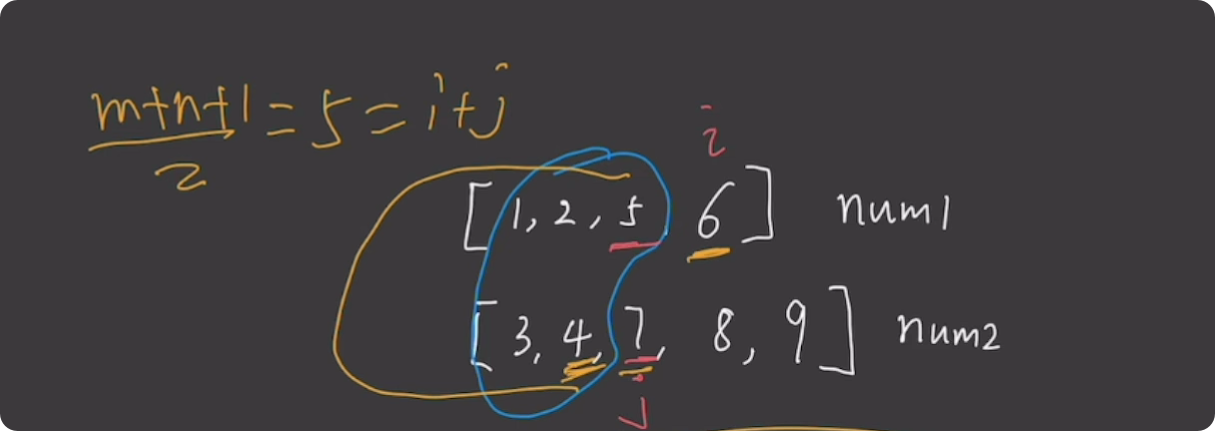 m+n+1
2
= 5 = i+j
i
[1, 2, 5, 6] num1
[3, 4, 7, 8, 9] num2
j